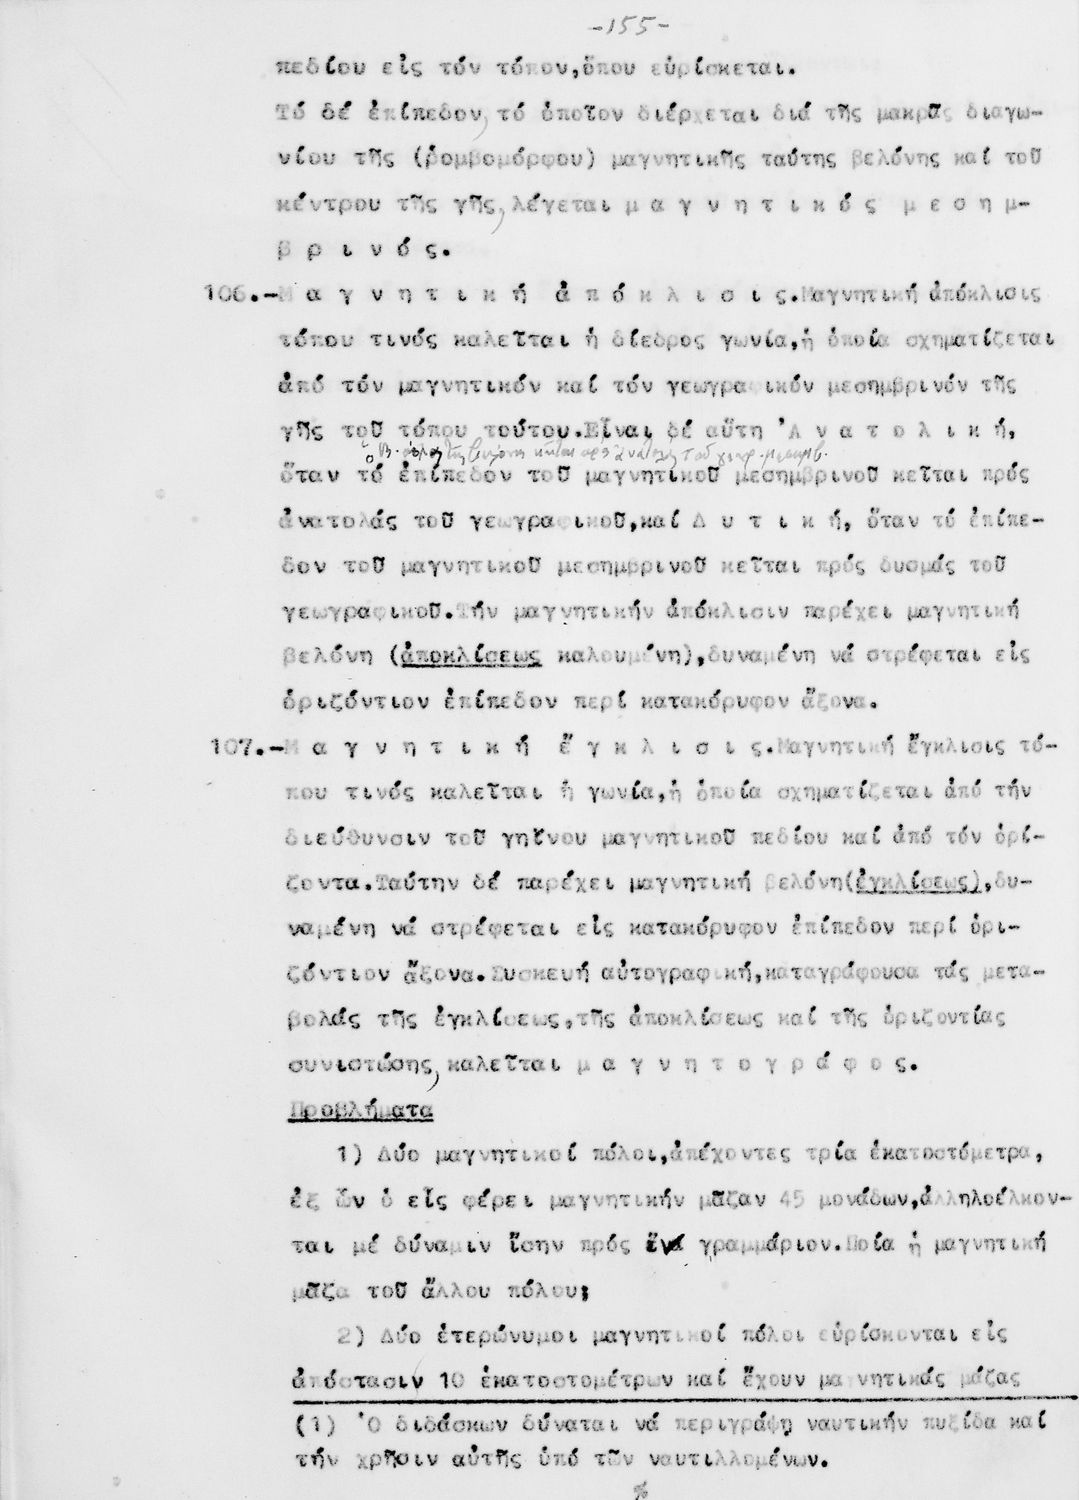 -155-
πεδίου εἰς τόν τόπον,ὅπου εὑρίσκεται.
Τό δέ ἐπίπεδον, τό ὁποῖον διέρχεται διά τῆς μακρᾶς διαγω-
νίου τῆς (ῥομβομόρφου) μαγνητικῆς ταύτης βελόνης καί τοῦ
κέντρου τῆς γῆς, λέγεται μ α γ ν η τ ι κ ό ς μ ε σ η μ-
β ρ ι ν ό ς.
106.-Μ α γ ν η τ ι κ ή ἀ π ό κ λ ι σ ι ς.Μαγνητική ἀπόκλισις
τόπου τινός καλεῖται ἡ δίεδρος γωνία,ἡ ὁποία σχηματίζεται
ἀπό τόν μαγνητικόν καί τόν γεωγραφικόν μεσημβρινόν τῆς
γῆς τοῦ τόπου τούτου.Εἶναι δέ αὕτη Ἀ ν α τ ο λ ι κ ή,
ὁ Β. πόλος τῆς βελόνης κεῖται πρός ἀνατολάς τοῦ γεωγρ. μεσημβ.
ὅταν τό ἐπίπεδον τοῦ μαγνητικοῦ μεσημβρινοῦ κεῖται πρός
ἀνατολάς τοῦ γεωγραφικοῦ,καί Δ υ τ ι κ ή, ὅταν τό ἐπίπε-
δον τοῦ μαγνητικοῦ μεσημβρινοῦ κεῖται πρός δυσμάς τοῦ
γεωγραφικοῦ.Τήν μαγνητικήν ἀπόκλισιν παρέχει μαγνητική
βελόνη (ἀποκλίσεως καλουμένη),δυναμένη νά στρέφεται εἰς
ὁριζόντιον ἐπίπεδον περί κατακόρυφον ἄξονα.
107.-Μ α γ ν η τ ι κ ή ἔ γ κ λ ι σ ι ς.Μαγνητική ἔγκλισις τό-
που τινός καλεῖται ἡ γωνία,ἡ ὁποία σχηματίζεται ἀπό τήν
διεύθυνσιν τοῦ γηΐνου μαγνητικοῦ πεδίου καί ἀπό τόν ὁρί-
ζοντα.Ταύτην δέ παρέχει μαγνητική βελόνη(ἐγκλίσεως),δυ-
ναμένη νά στρέφεται εἰς κατακόρυφον ἐπίπεδον περί ὁρι-
ζόντιον ἄξονα.Συσκευή αὐτογραφική,καταγράφουσα τάς μετα-
βολάς τῆς ἐγκλίσεως,τῆς ἀποκλίσεως καί τῆς ὁριζοντίας
συνιστώσης, καλεῖται μ α γ ν η τ ο γ ρ ά φ ο ς.
Προβλήματα
1) Δύο μαγνητικοί πόλοι,ἀπέχοντες τρία ἑκατοστόμετρα,
ἐξ ὧν ὁ εἷς φέρει μαγνητικήν μᾶζαν 45 μονάδων,ἀλληλοέλκον-
ται μέ δύναμιν ἴσην πρός ἕνα γραμμάριον.Ποία ἡ μαγνητική
μᾶζα τοῦ ἄλλου πόλου;
2) Δύο ἑτερώνυμοι μαγνητικοί πόλοι εὑρίσκονται εἰς
ἀπόστασιν 10 ἑκατοστομέτρων καί ἔχουν μαγνητικάς μάζας
(1) Ὁ διδάσκων δύναται νά περιγράψῃ ναυτικήν πυξίδα καί
τήν χρῆσιν αὐτῆς ὑπό τῶν ναυτιλλομένων.
%